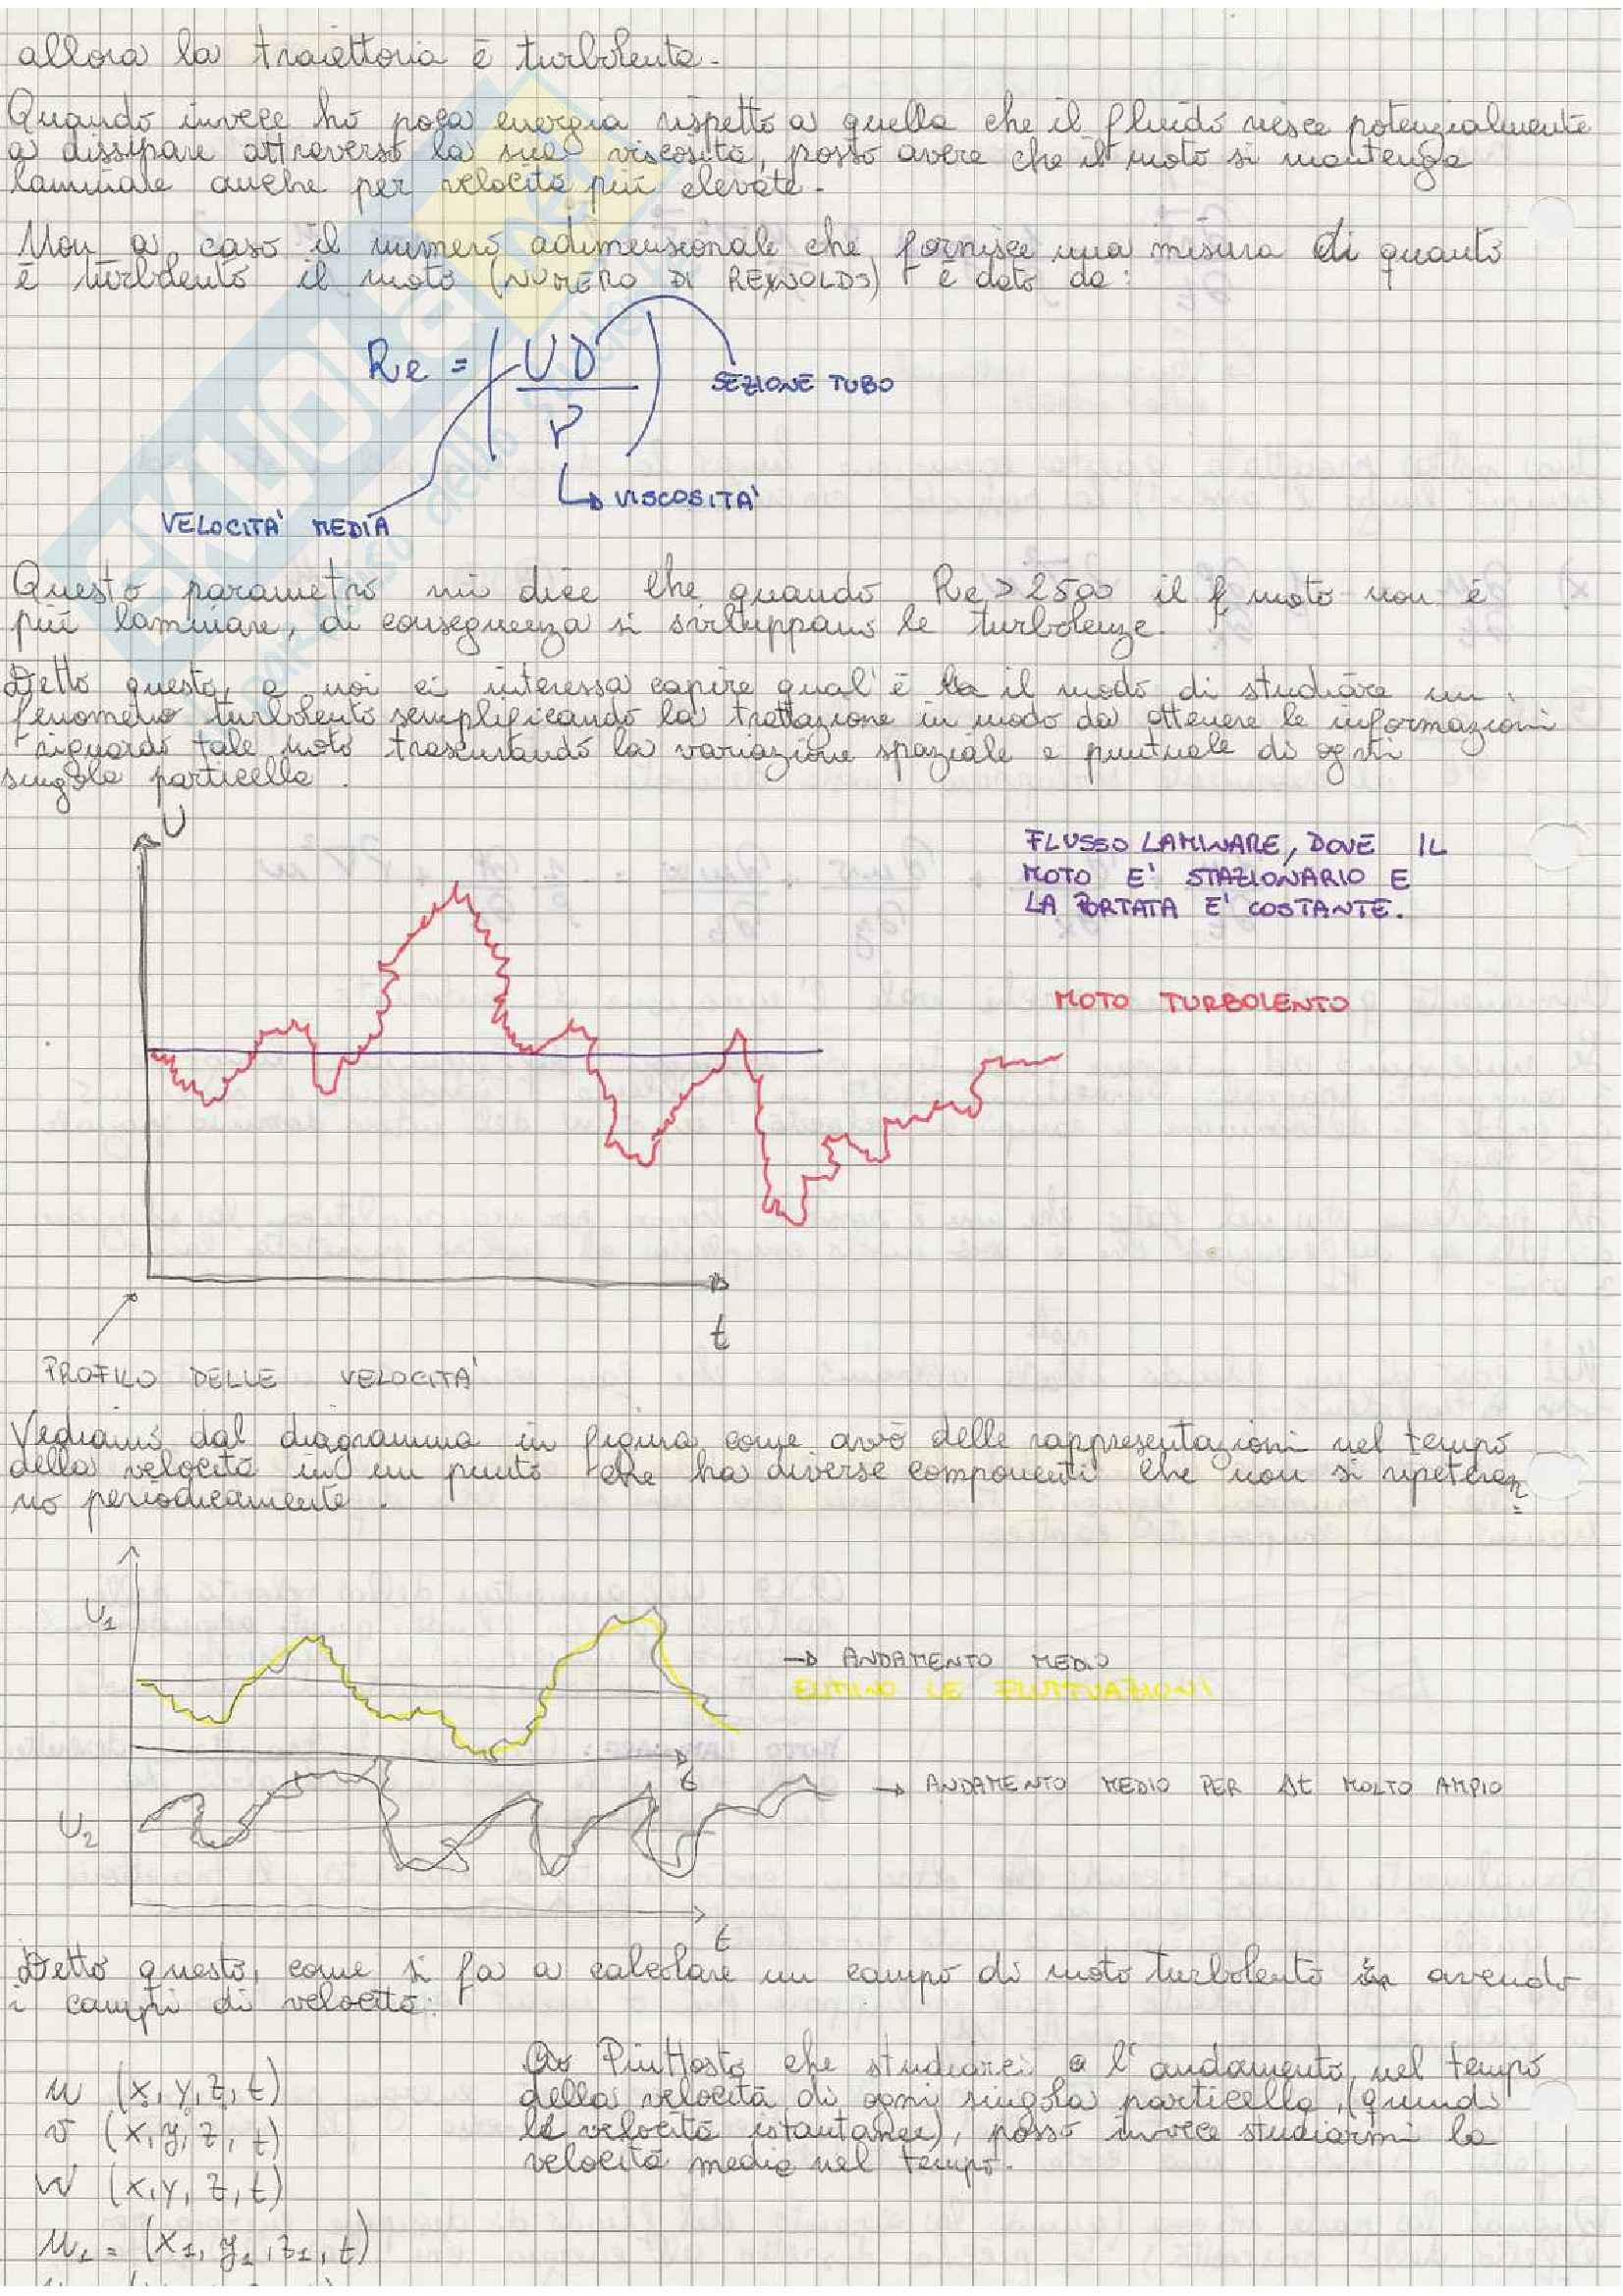 allora la traiettoria è turbolenta.
Quando invece ho poca energia rispetto a quella che il fluido riesce potenzialmente
a dissipare attraverso la sua viscosità, posso avere che il moto si mantenga
laminare anche per velocità più elevate.
Non a caso il numero adimensionale che fornisce una misura di quanto
è turbolento il moto (NUMERO DI REYNOLDS) è dato da:
Re = (UD/ν)
SEZIONE TUBO
VISCOSITA'
VELOCITA' MEDIA
Questo parametro mi dice che quando Re > 2500 il moto non è
più laminare, di conseguenza si sviluppano le turbolenze.
Detto questo, a noi ci interessa capire qual'è il modo di studiare un
fenomeno turbolento semplificando la trattazione in modo da ottenere le informazioni
riguardo tale moto trascurando la variazione spaziale e puntuale di ogni
singola particella.
U
FLUSSO LAMINARE, DOVE IL
MOTO E' STAZIONARIO E
LA PORTATA E' COSTANTE.
MOTO TURBOLENTO
t
PROFILO DELLE VELOCITA'
Vediamo dal diagramma in figura come avrò delle rappresentazioni nel tempo
della velocità in un punto che ha diverse componenti che non si ripeteran
no periodicamente.
U1
→ ANDAMENTO MEDIO
ELIMINO LE FLUTTUAZIONI
t
→ ANDAMENTO MEDIO PER Δt MOLTO AMPIO
U2
t
Detto questo, come si fa a calcolare un campo di moto turbolento avendo
i campi di velocità:
u (x, y, z, t)
v (x, y, z, t)
w (x, y, z, t)
u1 = (x1, y1, z1, t)
Piuttosto che studiarci l'andamento nel tempo
della velocità di ogni singola particella, (quindi
le velocità istantanee), posso invece studiarmi la
velocità media nel tempo.